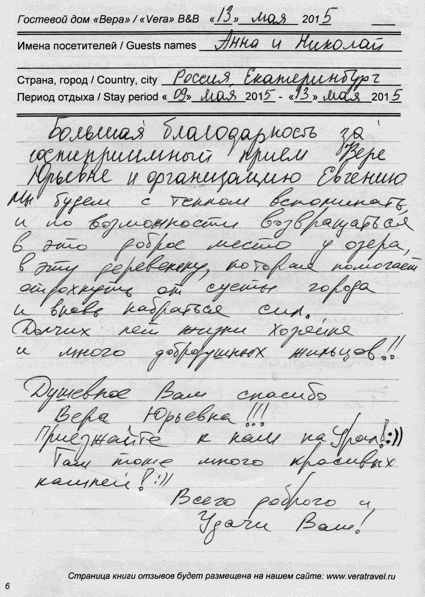 Гостевой дом «Вера» / «Vera» B&B «13» мая 2015
Имена посетителей / Guests names Анна и Николай
Страна, город / Country, city Россия, Екатеринбург
Период отдыха / Stay period «09» мая 2015 - «13» мая 2015
Большая благодарность за
гостеприимный прием Вере
Юрьевне и организацию Евгению.
Мы будем с теплом вспоминать,
и по возможности возвращаться,
в это доброе место у озера,
в эту деревеньку, которая помогает
отдохнуть от суеты города
и вновь набраться сил.
Долгих лет жизни хозяйке
и много добродушных жильцов!!
Душевное Вам спасибо
Вера Юрьевна!!!
Приезжайте к нам на Урал!:))
Там тоже много красивых
камней!:))
Всего доброго и
Удачи Вам!
Страница книги отзывов будет размещена на нашем сайте: www.veratravel.ru
6